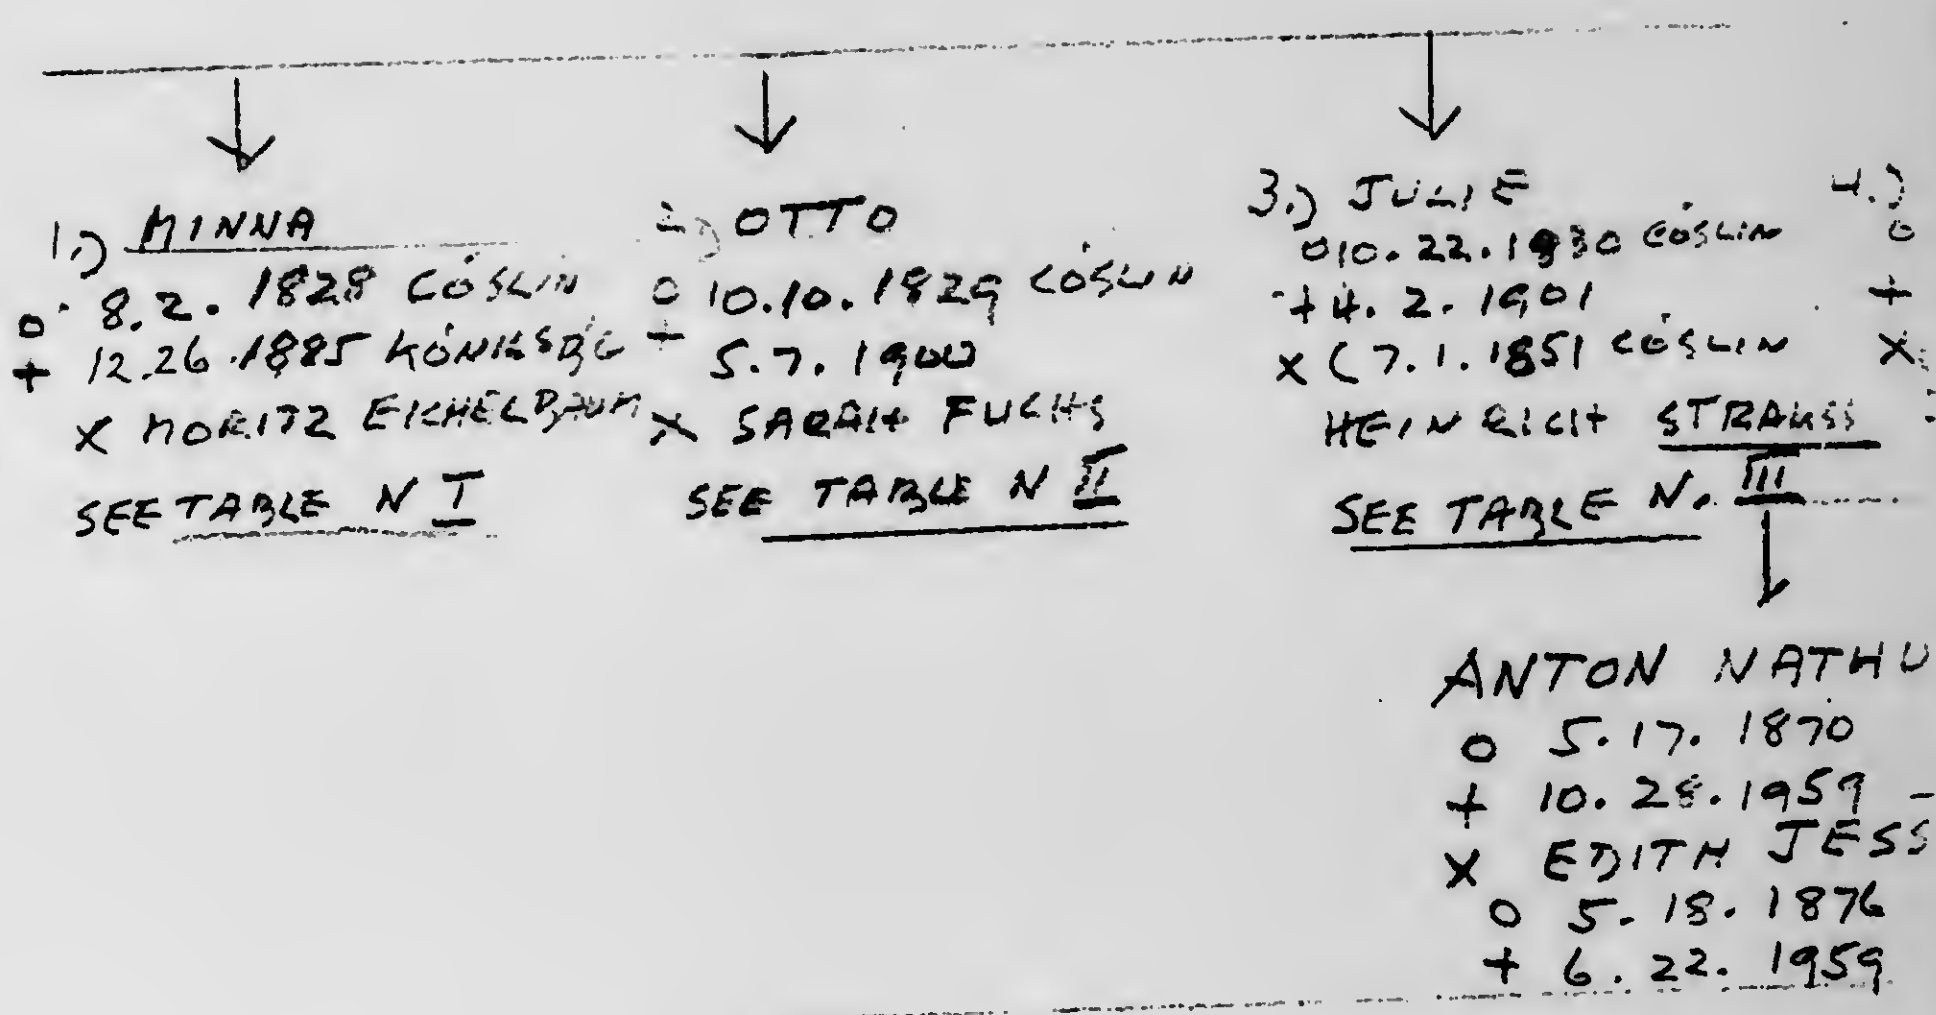 1.) MINNA
o 8.2. 1828 CÖSLIN
+ 12.26.1885 KÖNIGSBG
X MORITZ EICHELBAUM
SEE TABLE N I
2.) OTTO
o 10.10.1829 CÖSLIN
+ 5.7.1900
X SARAH FUCHS
SEE TABLE N II
3.) JULIE
o 10.22.1830 CÖSLIN
+ 4.2.1901
X (7.1.1851 CÖSLIN
HEINRICH STRAUSS
SEE TABLE N. III
ANTON NATHU
o 5.17.1870
+ 10.28.1959 -
X EDITH JESS
o 5.18.1876
+ 6.22.1959
4.)
o
+
X